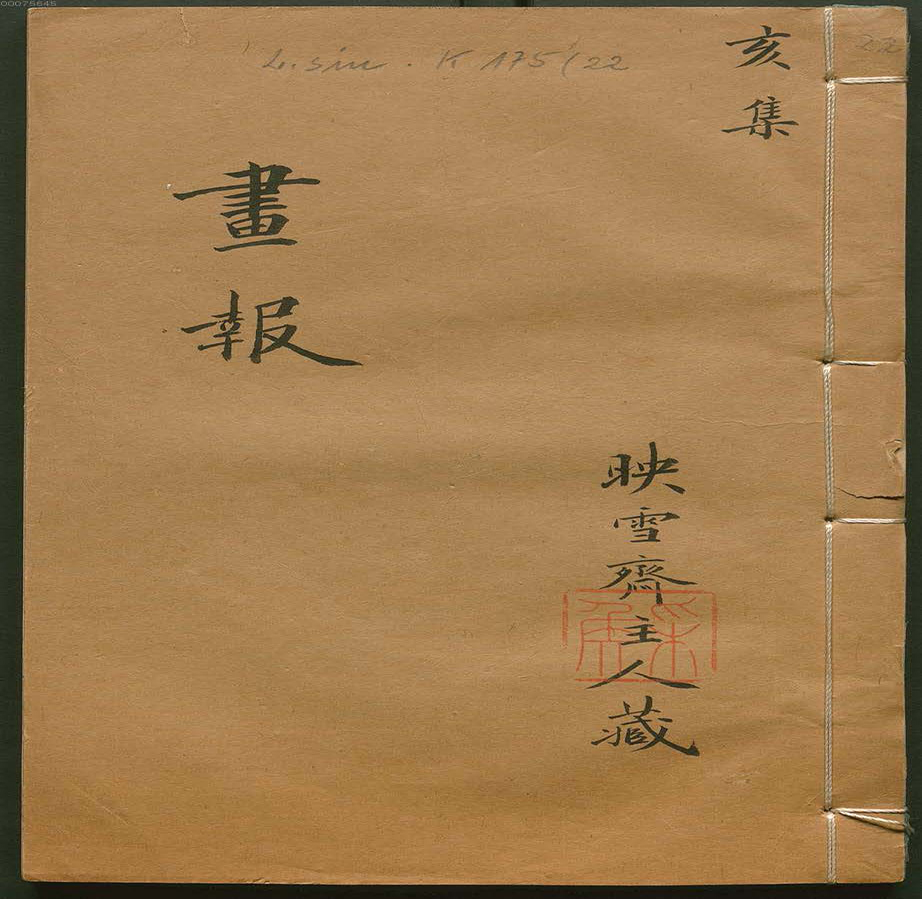 00075645
L. sin. K 175/22
22
亥集
畫報
映雪齋主人藏